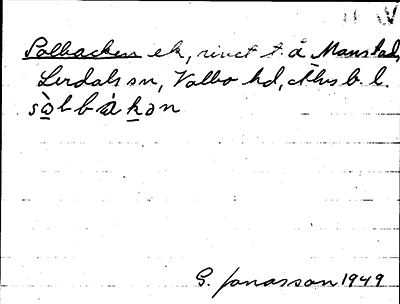 Solbacken ek, rivet t. å Manstad,
Lerdals sn, Valbo hd, Älvsb. l.
sò̱lbàḵən
G. Jonasson 1949